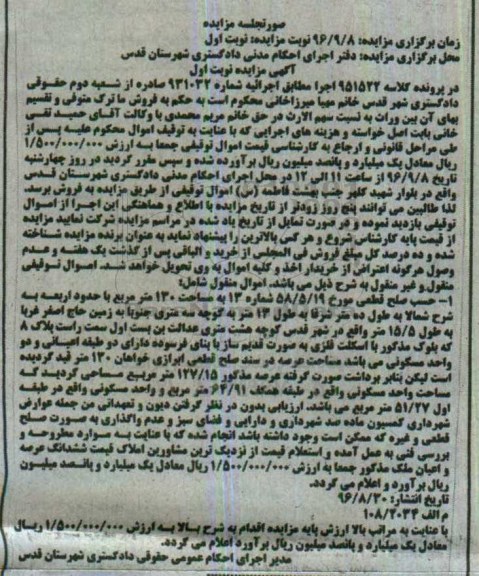 صورتجلسه مزایده
زمان برگزاری مزایده: ۹۶/۹/۸ نوبت مزایده: نوبت اول
محل برگزاری مزایده: دفتر اجرای احکام مدنی دادگستری شهرستان قدس
آگهی مزایده نوبت اول
در پرونده کلاسه ۹۵۱۵۲۲ اجرا مطابق اجرائیه شماره ۹۳۱۰۳۲ صادره از شعبه دوم حقوقی
دادگستری شهر قدس خانم مهیا میرزاخانی محکوم است به حکم به فروش ما ترک متوفی و تقسیم
بهای آن بین وراث به نسبت سهم الارث در حق خانم مریم محمدی با وکالت آقای حمید تقی
خانی بابت اصل خواسته و هزینه های اجرایی که با عنایت به توقیف اموال محکوم علیه پس از
طی مراحل قانونی و ارجاع به کارشناسی قیمت اموال توقیفی جمعا به ارزش ۱/۵۰۰/۰۰۰/۰۰۰
ریال معادل یک میلیارد و پانصد میلیون ریال برآورده شده و سپس مقرر گردید در روز چهارشنبه
تاریخ ۹۶/۹/۸ از ساعت ۱۱ الی ۱۲ در محل اجرای احکام مدنی دادگستری شهرستان قدس
واقع در بلوار شهید کلهر نبش بهشت فاطمه (س) اموال توقیفی از طریق مزایده به فروش برسد.
لذا طالبین می توانند پنج روز زودتر از تاریخ مزایده با اطلاع و هماهنگی این اجرا از اموال
توقیفی بازدید نموده و در صورت تمایل از تاریخ یاد شده در مراسم مزایده شرکت نمایید مزایده
از قیمت پایه کارشناس شروع و هر کس بالاترین را پیشنهاد نماید به عنوان برنده مزایده شناخته
شده و ده درصد کل مبلغ فروش فی المجلس از خرید و الباقی پس از گذشت یک هفته و عدم
وصول هرگونه اعتراض از خریدار اخذ و کلیه اموال به وی تحویل خواهد شد. اموال توقیفی
منقول و غیر منقول به شرح ذیل می باشد. اموال منقول شامل:
۱- حسب صلح قطعی مورخ ۵۸/۵/۱۹ شماره ۱۳ به مساحت ۱۳۰ متر مربع با حدود اربعه به
شرح شمالا به طول ده متر شرقا به طول ۱۳ متر به کوچه سه متری جنوبا به زمین حاج اصغر غربا
به طول ۱۵/۵ متر واقع در شهر قدس کوچه هشت متری عدالت بن بست اول سمت راست پلاک ۸
که بلوک مذکور با اسکلت فلزی به صورت قدیم ساز با بنای فرسوده دارای دو طبقه اعیانی و دو
واحد مسکونی می باشد مساحت عرصه در سند صلح قطعی ابرازی خواهان ۱۳۰ متر قید گردیده
است لیکن بنابر برداشت صورت گرفته عرصه مذکور ۱۲۷/۱۵ متر مربع مساحی گردید که
مساحت واحد مسکونی واقع در طبقه همکف ۶۴/۹۱ متر مربع و واحد مسکونی واقع در طبقه
اول ۵۱/۲۷ متر مربع می باشد. ارزیابی بدون در نظر گرفتن دیون و تعهداتی من جمله عوارض
شهرداری کمسیون ماده صد شهرداری و دارایی و فضای سبز و عدم واگذاری به صورت صلح
قطعی و غیره که ممکن است وجود داشته باشد انجام شده که با عنایت به موارد مطروحه و
بررسی فنی به عمل آمده و استعلام قیمت از نزدیک ترین مشاورین املاک قیمت ششدانگ عرصه
و اعیان ملک مذکور جمعا به ارزش ۱/۵۰۰/۰۰۰/۰۰۰ ریال معادل یک میلیارد و پانصد میلیون
ریال برآورد و اعلام می گردد.
تاریخ انتشار: ۹۶/۸/۳۰
م الف ۱۰۸/۲۰۳۴
با عنایت به مراتب بالا ارزش پایه مزایده اقدام به شرح بالا به ارزش ۱/۵۰۰/۰۰۰/۰۰۰ ریال
معادل یک میلیارد و پانصد میلیون ریال برآورد اعلام می گردد.
مدیر اجرای احکام عمومی حقوقی دادگستری شهرستان قدس